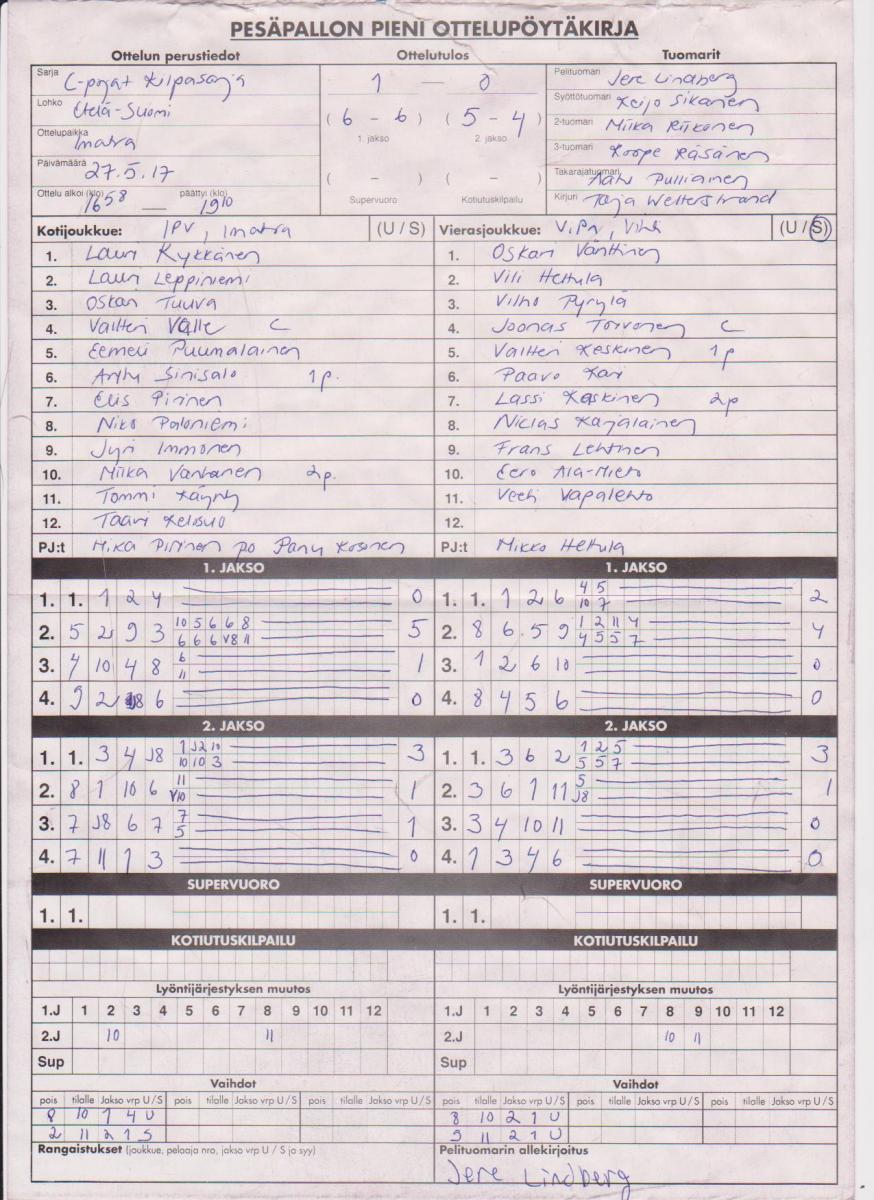 PESÄPALLON PIENI OTTELUPÖYTÄKIRJA
Ottelun perustiedot Ottelutulos Tuomarit
Sarja C-pojat Kilpasarja
Lohko Etelä-Suomi
Ottelupaikka Imatra
Päivämäärä 27.5.17
Ottelu alkoi (klo) 1658 — päättyi (klo) 1910
1 — 0
( 6 - 6 ) ( 5 - 4 )
1. jakso 2. jakso
( - ) ( - )
Supervuoro Kotiutuskilpailu
Pelituomari Jere Lindberg
Syöttötuomari Keijo Sikanen
2-tuomari Miika Riikonen
3-tuomari Roope Räsänen
Takarajatuomari Aatu Pulliainen
Kirjuri Tarja Wetterstrand
Kotijoukkue: IPV, Imatra (U / S)
1. Lauri Kykkänen
2. Lauri Leppiniemi
3. Oskari Tuuva
4. Valtteri Valle C
5. Eemeli Puumalainen
6. Arttu Sinisalo 1p.
7. Elis Pirinen
8. Niko Paloniemi
9. Jyri Immonen
10. Miika Vanhanen 2p.
11. Tommi Käyhty
12. Taavi Kelosuo
PJ:t Mika Pirinen po Panu Kosonen
Vierasjoukkue: ViPV, Vihti (U / S)
1. Oskari Vänttinen
2. Vili Hettula
3. Vilho Pyrylä
4. Joonas Toivonen C
5. Valtteri Keskinen 1p
6. Paavo Kari
7. Lassi Keskinen 2p
8. Niclas Karjalainen
9. Frans Lehtinen
10. Eero Ala-Mieto
11. Veeti Vapalehto
12.
PJ:t Mikko Hettula
1. JAKSO
1. 1. 1 2 4 0
2. 5 2 9 3 10 5 6 6 8 5
6 6 6 V8 11
3. 4 10 4 8 6 1
11
4. 9 2 J8 6 0
1. JAKSO
1. 1. 1 2 6 4 5 2
10 7
2. 8 6 5 9 1 2 11 4 4
4 5 5 7
3. 1 2 6 10 0
4. 8 4 5 6 0
2. JAKSO
1. 1. 3 4 J8 1 J2 10 3
10 10 3
2. 8 1 10 6 11 1
V10
3. 7 J8 6 7 7 1
5
4. 7 11 1 3 0
2. JAKSO
1. 1. 3 6 2 1 2 5 3
5 5 7
2. 3 6 1 11 5 1
J8
3. 3 4 10 11 0
4. 1 3 4 6 0
SUPERVUORO SUPERVUORO
1. 1. 1. 1.
KOTIUTUSKILPAILU KOTIUTUSKILPAILU
Lyöntijärjestyksen muutos Lyöntijärjestyksen muutos
1.J 1 2 3 4 5 6 7 8 9 10 11 12 1.J 1 2 3 4 5 6 7 8 9 10 11 12
2.J 10 11 2.J 10 11
Sup Sup
Vaihdot Vaihdot
pois tilalle Jakso vrp U / S pois tilalle Jakso vrp U / S pois tilalle Jakso vrp U / S pois tilalle Jakso vrp U / S pois tilalle Jakso vrp U / S pois tilalle Jakso vrp U / S
8 10 1 4 U 8 10 2 1 U
2 11 2 1 S 9 11 2 1 U
Rangaistukset (joukkue, pelaaja nro, jakso vrp U / S ja syy) Pelituomarin allekirjoitus
Jere Lindberg